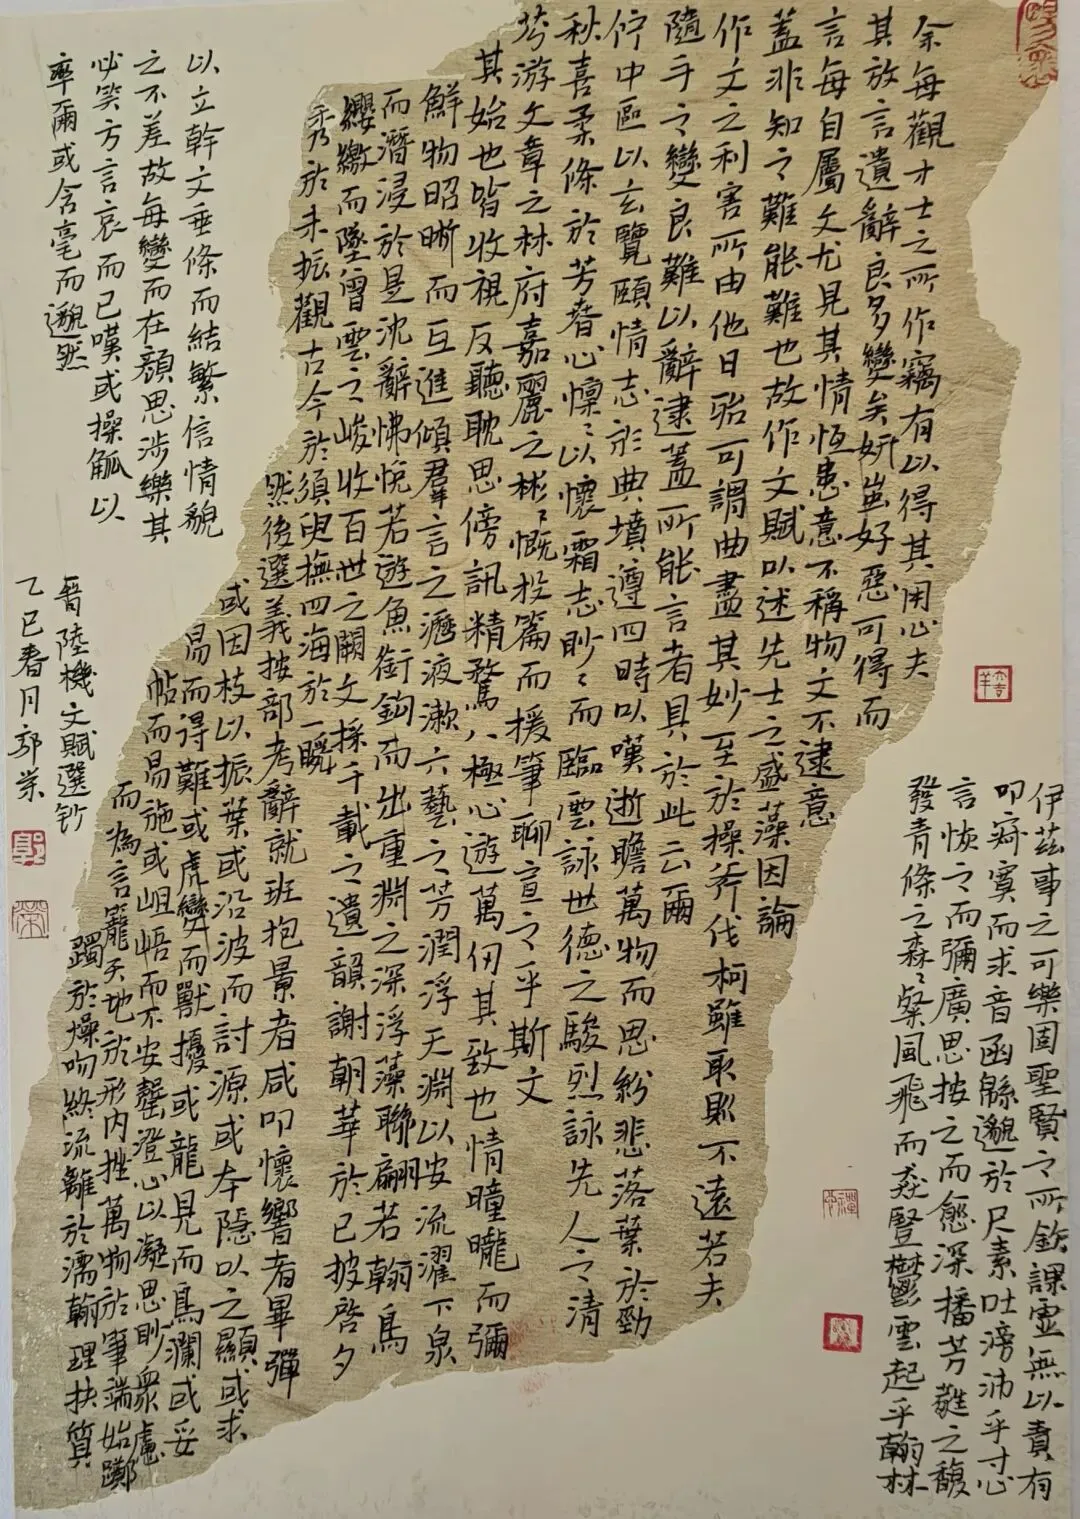 余每觀才士之所作竊有以得其用心夫
其放言遺辭良多變矣妍蚩好惡可得而
言每自屬文尤見其情恆患意不稱物文不逮意
蓋非知之難能難也故作文賦以述先士之盛藻因論
作文之利害所由他日殆可謂曲盡其妙至於操斧伐柯雖取則不遠若夫
隨手之變良難以辭逮蓋所能言者具於此云爾
佇中區以玄覽頤情志於典墳遵四時以嘆逝瞻萬物而思紛悲落葉於勁
秋喜柔條於芳春心懍〻以懷霜志眇〻而臨雲詠世德之駿烈詠先人之清
芬游文章之林府嘉麗之彬〻慨投篇而援筆聊宣之乎斯文
其始也皆收視反聽耽思傍訊精騖八極心遊萬仞其致也情曈曨而彌
鮮物昭晣而互進傾羣言之瀝液漱六藝之芳潤浮天淵以安流濯下泉
而潛浸於是沈辭怫悅若遊魚銜鉤而出重淵之深浮藻聯翩若翰鳥
纓繳而墜曾雲之峻收百世之闕文採千載之遺韻謝朝華於已披啓夕
秀於未振觀古今於須臾撫四海於一瞬
然後選義按部考辭就班抱景者咸叩懷響者畢彈
或因枝以振葉或沿波而討源或本隱以之顯或求
易而得難或虎變而獸擾或龍見而鳥瀾或妥
帖而易施或岨峿而不安罄澄心以凝思眇衆慮
而為言籠天地於形內挫萬物於筆端始躑
躅於燥吻終流離於濡翰理扶質
以立幹文垂條而結繁信情貌
之不差故每變而在顏思涉樂其
必笑方言哀而已嘆或操觚以
率爾或含毫而邈然
伊茲事之可樂固聖賢之所欽課虛無以責有
叩寂寞而求音函緜邈於尺素吐滂沛乎寸心
言恢之而彌廣思按之而愈深播芳蕤之馥
發青條之森〻粲風飛而猋豎鬱雲起乎翰林
晉陸機文賦選鈔
乙巳春月郭榮
郭
榮